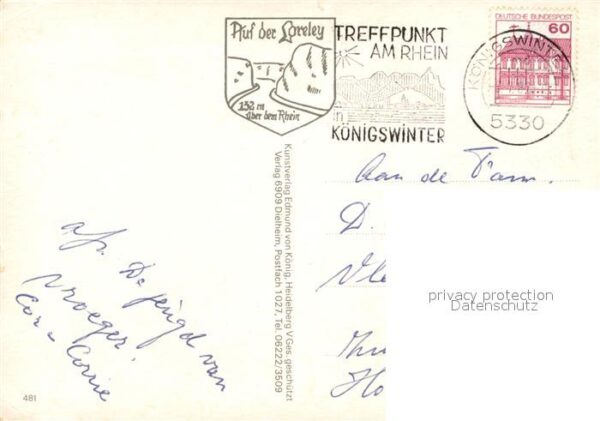 Auf der Loreley
132 m
über dem Rhein
TREFFPUNKT
AM RHEIN
in
KÖNIGSWINTER
DEUTSCHE BUNDESPOST
60
KÖNIGSWINTER
5330
Aan de Fam.
D.
Vle
Ho
privacy protection
Datenschutz
Kunstverlag Edmund von König, Heidelberg V Ges. geschützt
Verlag 6909 Dielheim, Postfach 1027, Tel. 06222/3509
De jeugd van
vroeger.
Cor + Corrie
481